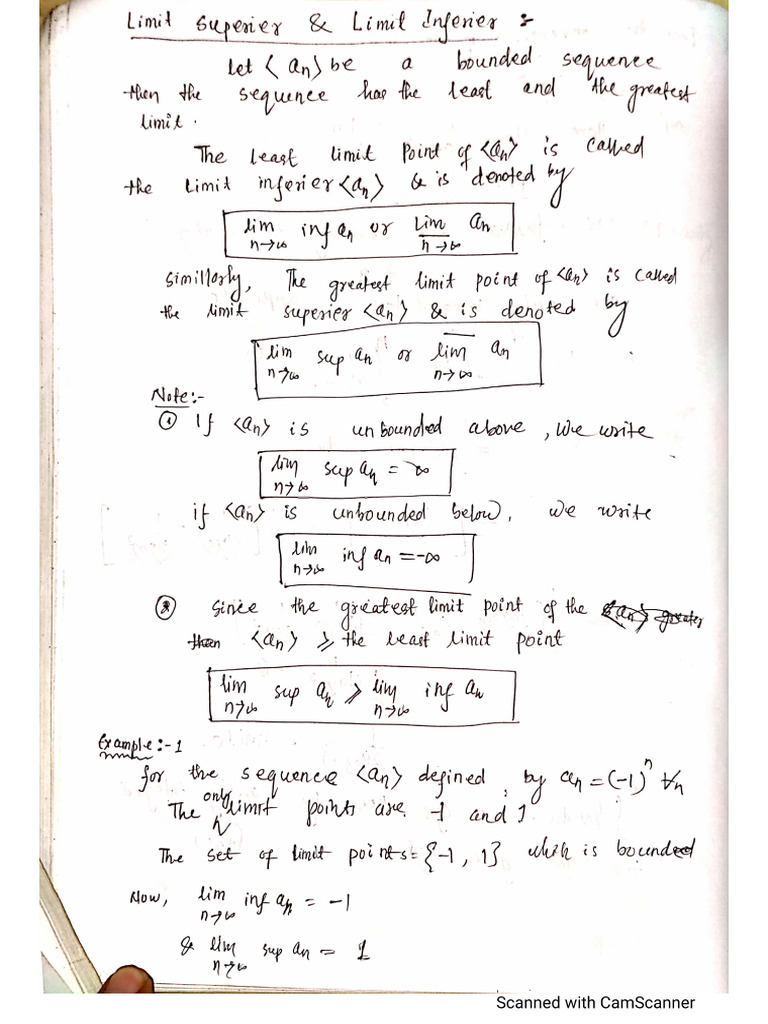 Limit Superier & Limit Inferier :-
Let ⟨an⟩ be a bounded sequence
then the sequence has the least and the greatest
limit.
The least limit point of ⟨an⟩ is called
the limit inferier ⟨an⟩ & is denoted by
lim n→∞ inf an or Lim n→∞ an
Simillorly, The greatest limit point of ⟨an⟩ is called
the limit superier ⟨an⟩ & is denoted by
lim n→∞ sup an or lim n→∞ an
Note:-
① If ⟨an⟩ is unbounded above, we write
lim n→∞ sup an = ∞
if ⟨an⟩ is unbounded below, we write
lim n→∞ inf an = -∞
② Since the greatest limit point of the
⟨an⟩ ⩾ the least limit point
lim n→∞ sup an ⩾ lim n→∞ inf an
Example:-1
for the sequence ⟨an⟩ defined by an = (-1)^n ∀n
The only limit points are -1 and 1
The set of limit points = {-1, 1} which is bounded
Now, lim n→∞ inf an = -1
& lim n→∞ sup an = 1
Scanned with CamScanner